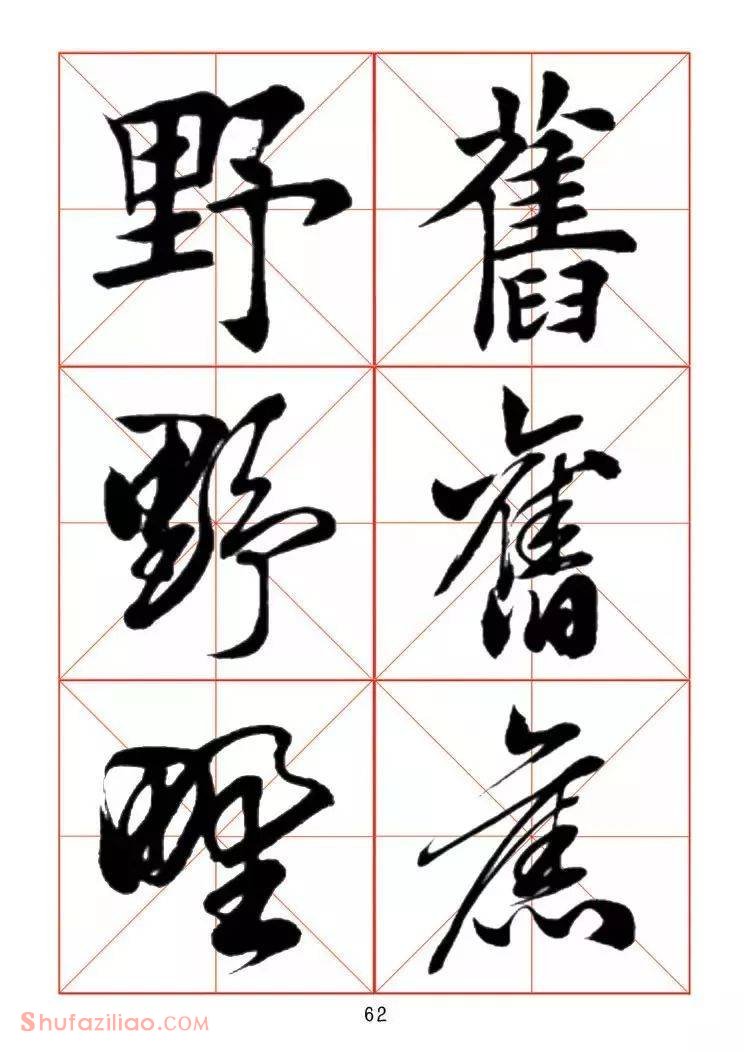 舊 野
舊 野
舊 野
62
Shufaziliao.COM